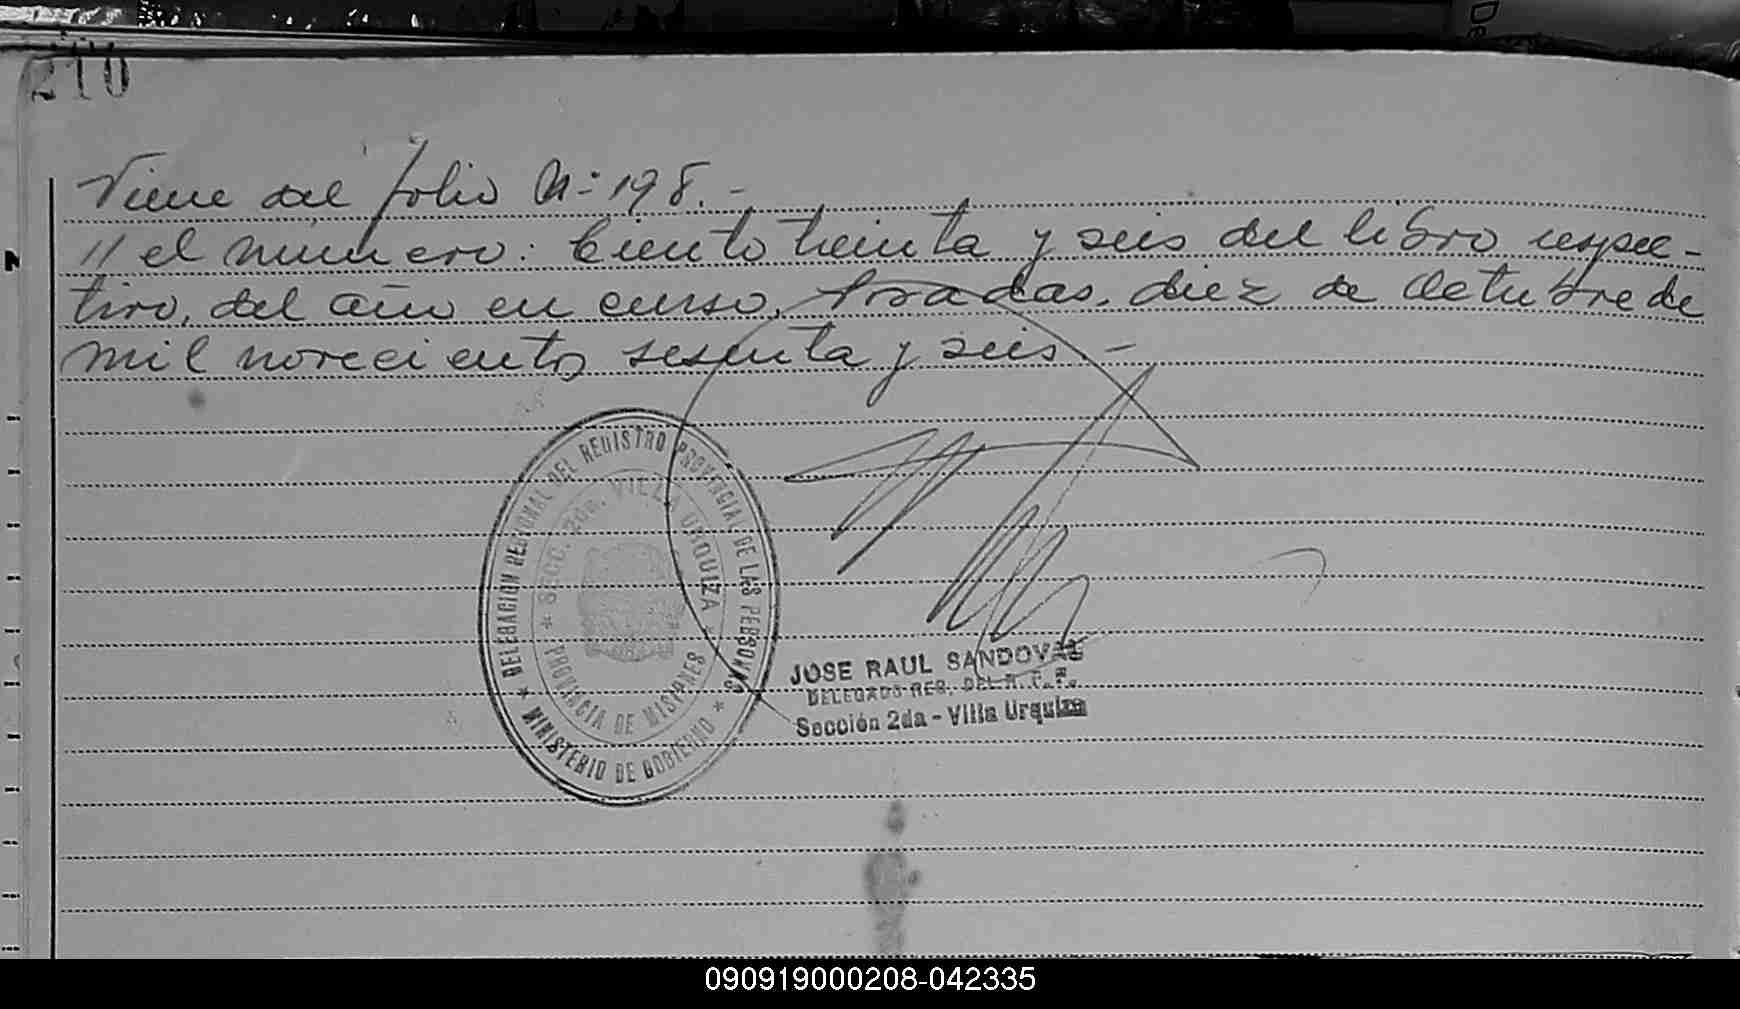 210
Viene del folio Nº 198.-
// el número: Ciento treinta y seis del libro respec-
tivo, del año en curso. Posadas, diez de Octubre de
mil novecientos sesenta y seis.-
DELEGACION REGIONAL DEL REGISTRO PROVINCIAL DE LAS PERSONAS
SECC. 2da. VILLA URQUIZA
PROVINCIA DE MISIONES
MINISTERIO DE GOBIERNO
JOSE RAUL SANDOVAL
DELEGADO REG. DEL R. C. P.
Sección 2da - Villa Urquiza
De
090919000208-042335